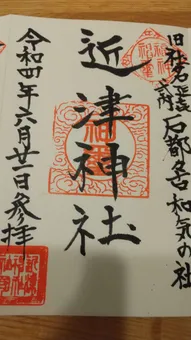 旧社名
式内石都々古和気の社
近津神社
令和四年六月廿一日参拝